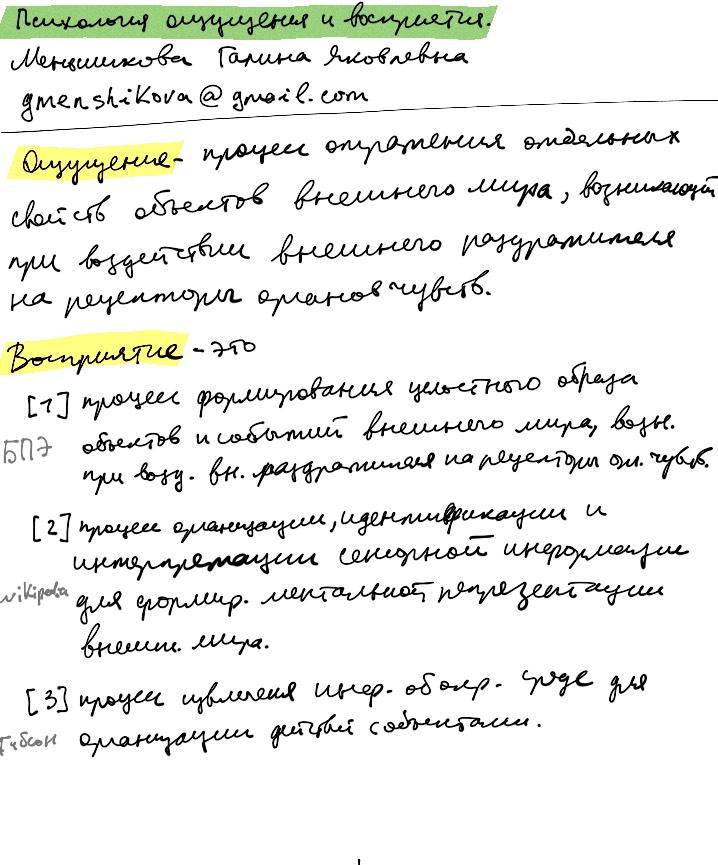 Психология ощущения и восприятия.
Меньшикова Галина Яковлевна
gmenshikova@gmail.com
Ощущение - процесс отражения отдельных
свойств объектов внешнего мира, возникающий
при воздействии внешнего раздражителя
на рецепторы органов чувств.
Восприятие - это
[1] процесс формирования целостного образа
БПЭ объектов и событий внешнего мира, возн.
при возд. вн. раздражителя на рецепторы орг. чувств.
[2] процесс организации, идентификации и
интерпретации сенсорной информации
wikipedia для формир. ментальной репрезентации
внешн. мира.
[3] процесс извлечения инф. об окр. среде для
Гибсон организации действий с объектами.